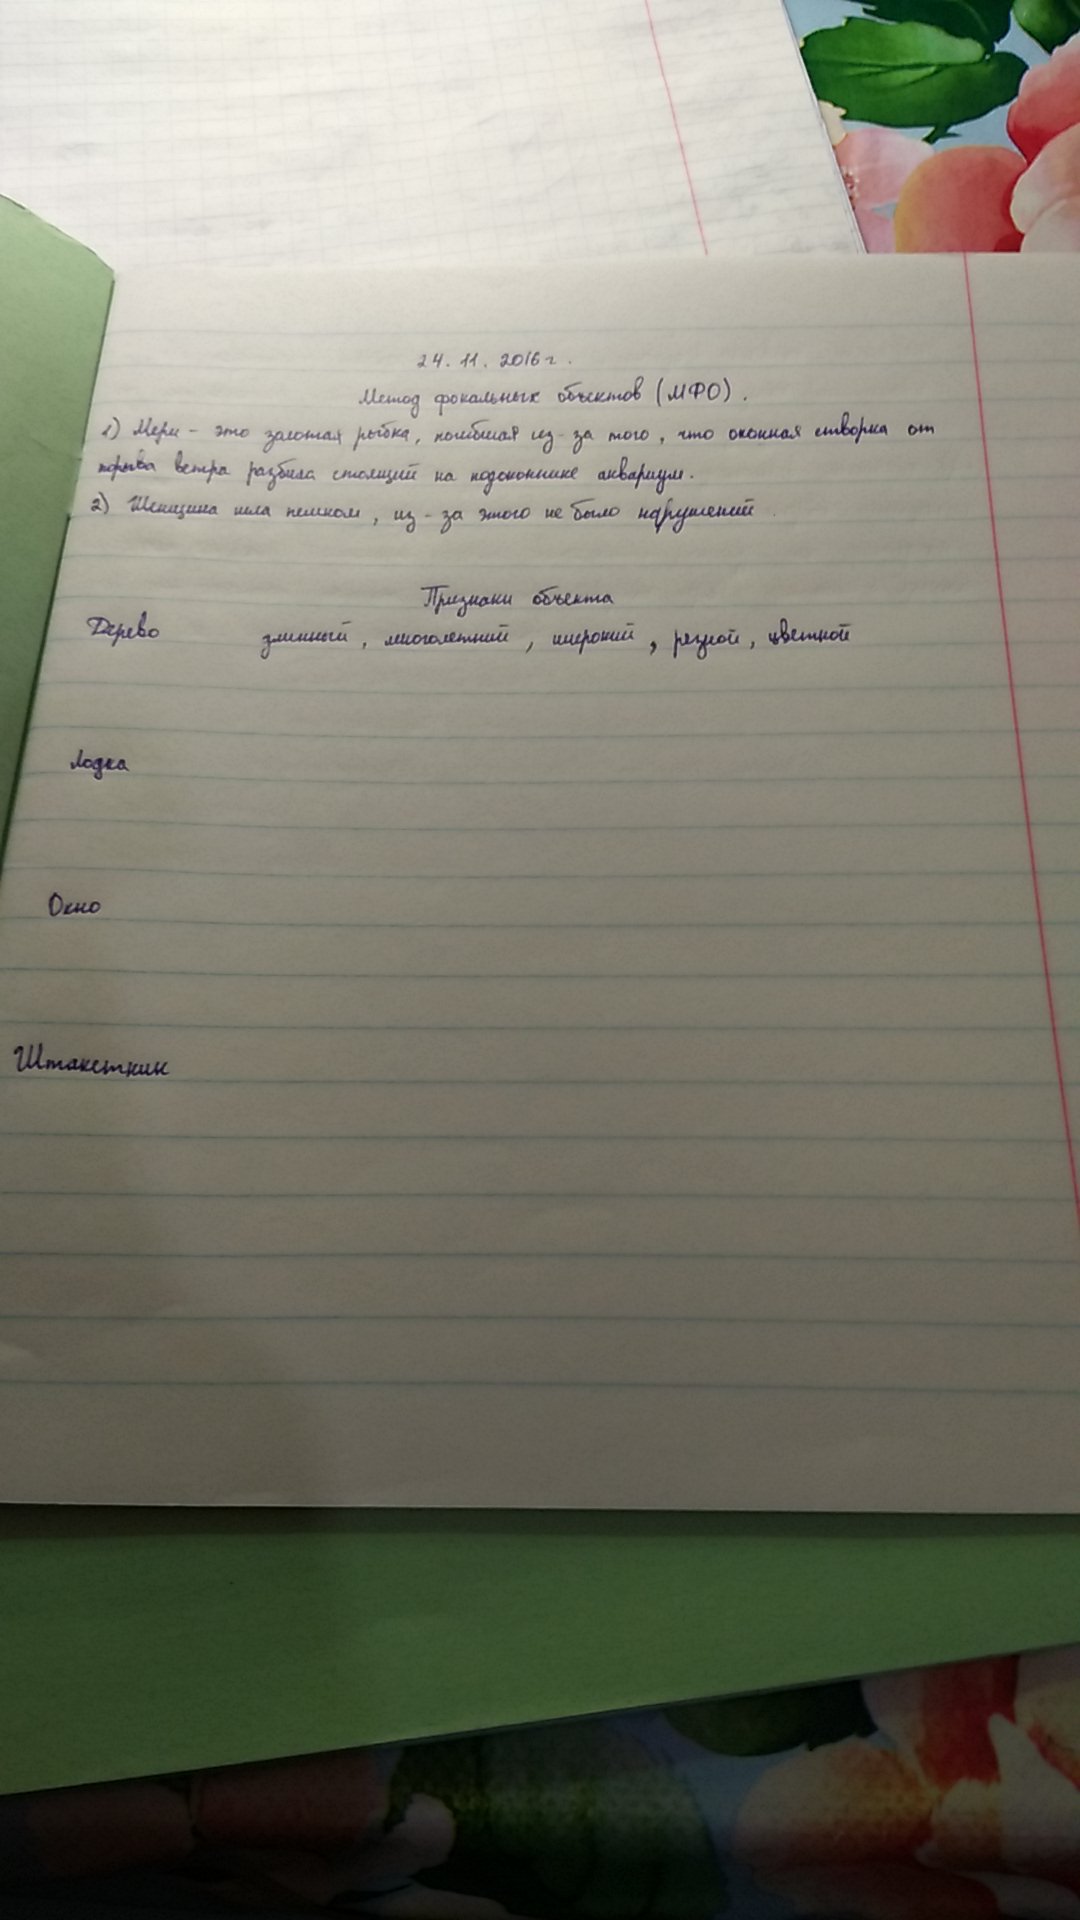 24. 11. 2016 г.
Метод фокальных объектов (МФО).
1) Мери - это золотая рыбка, погибшая из-за того, что оконная створка от
порыва ветра разбила стоящий на подоконнике аквариум.
2) Женщина шла пешком, из-за этого не было нарушений.
Признаки объекта
Дерево длинный, многолетний, широкий, резной, цветной
Лодка
Окно
Штакеткик